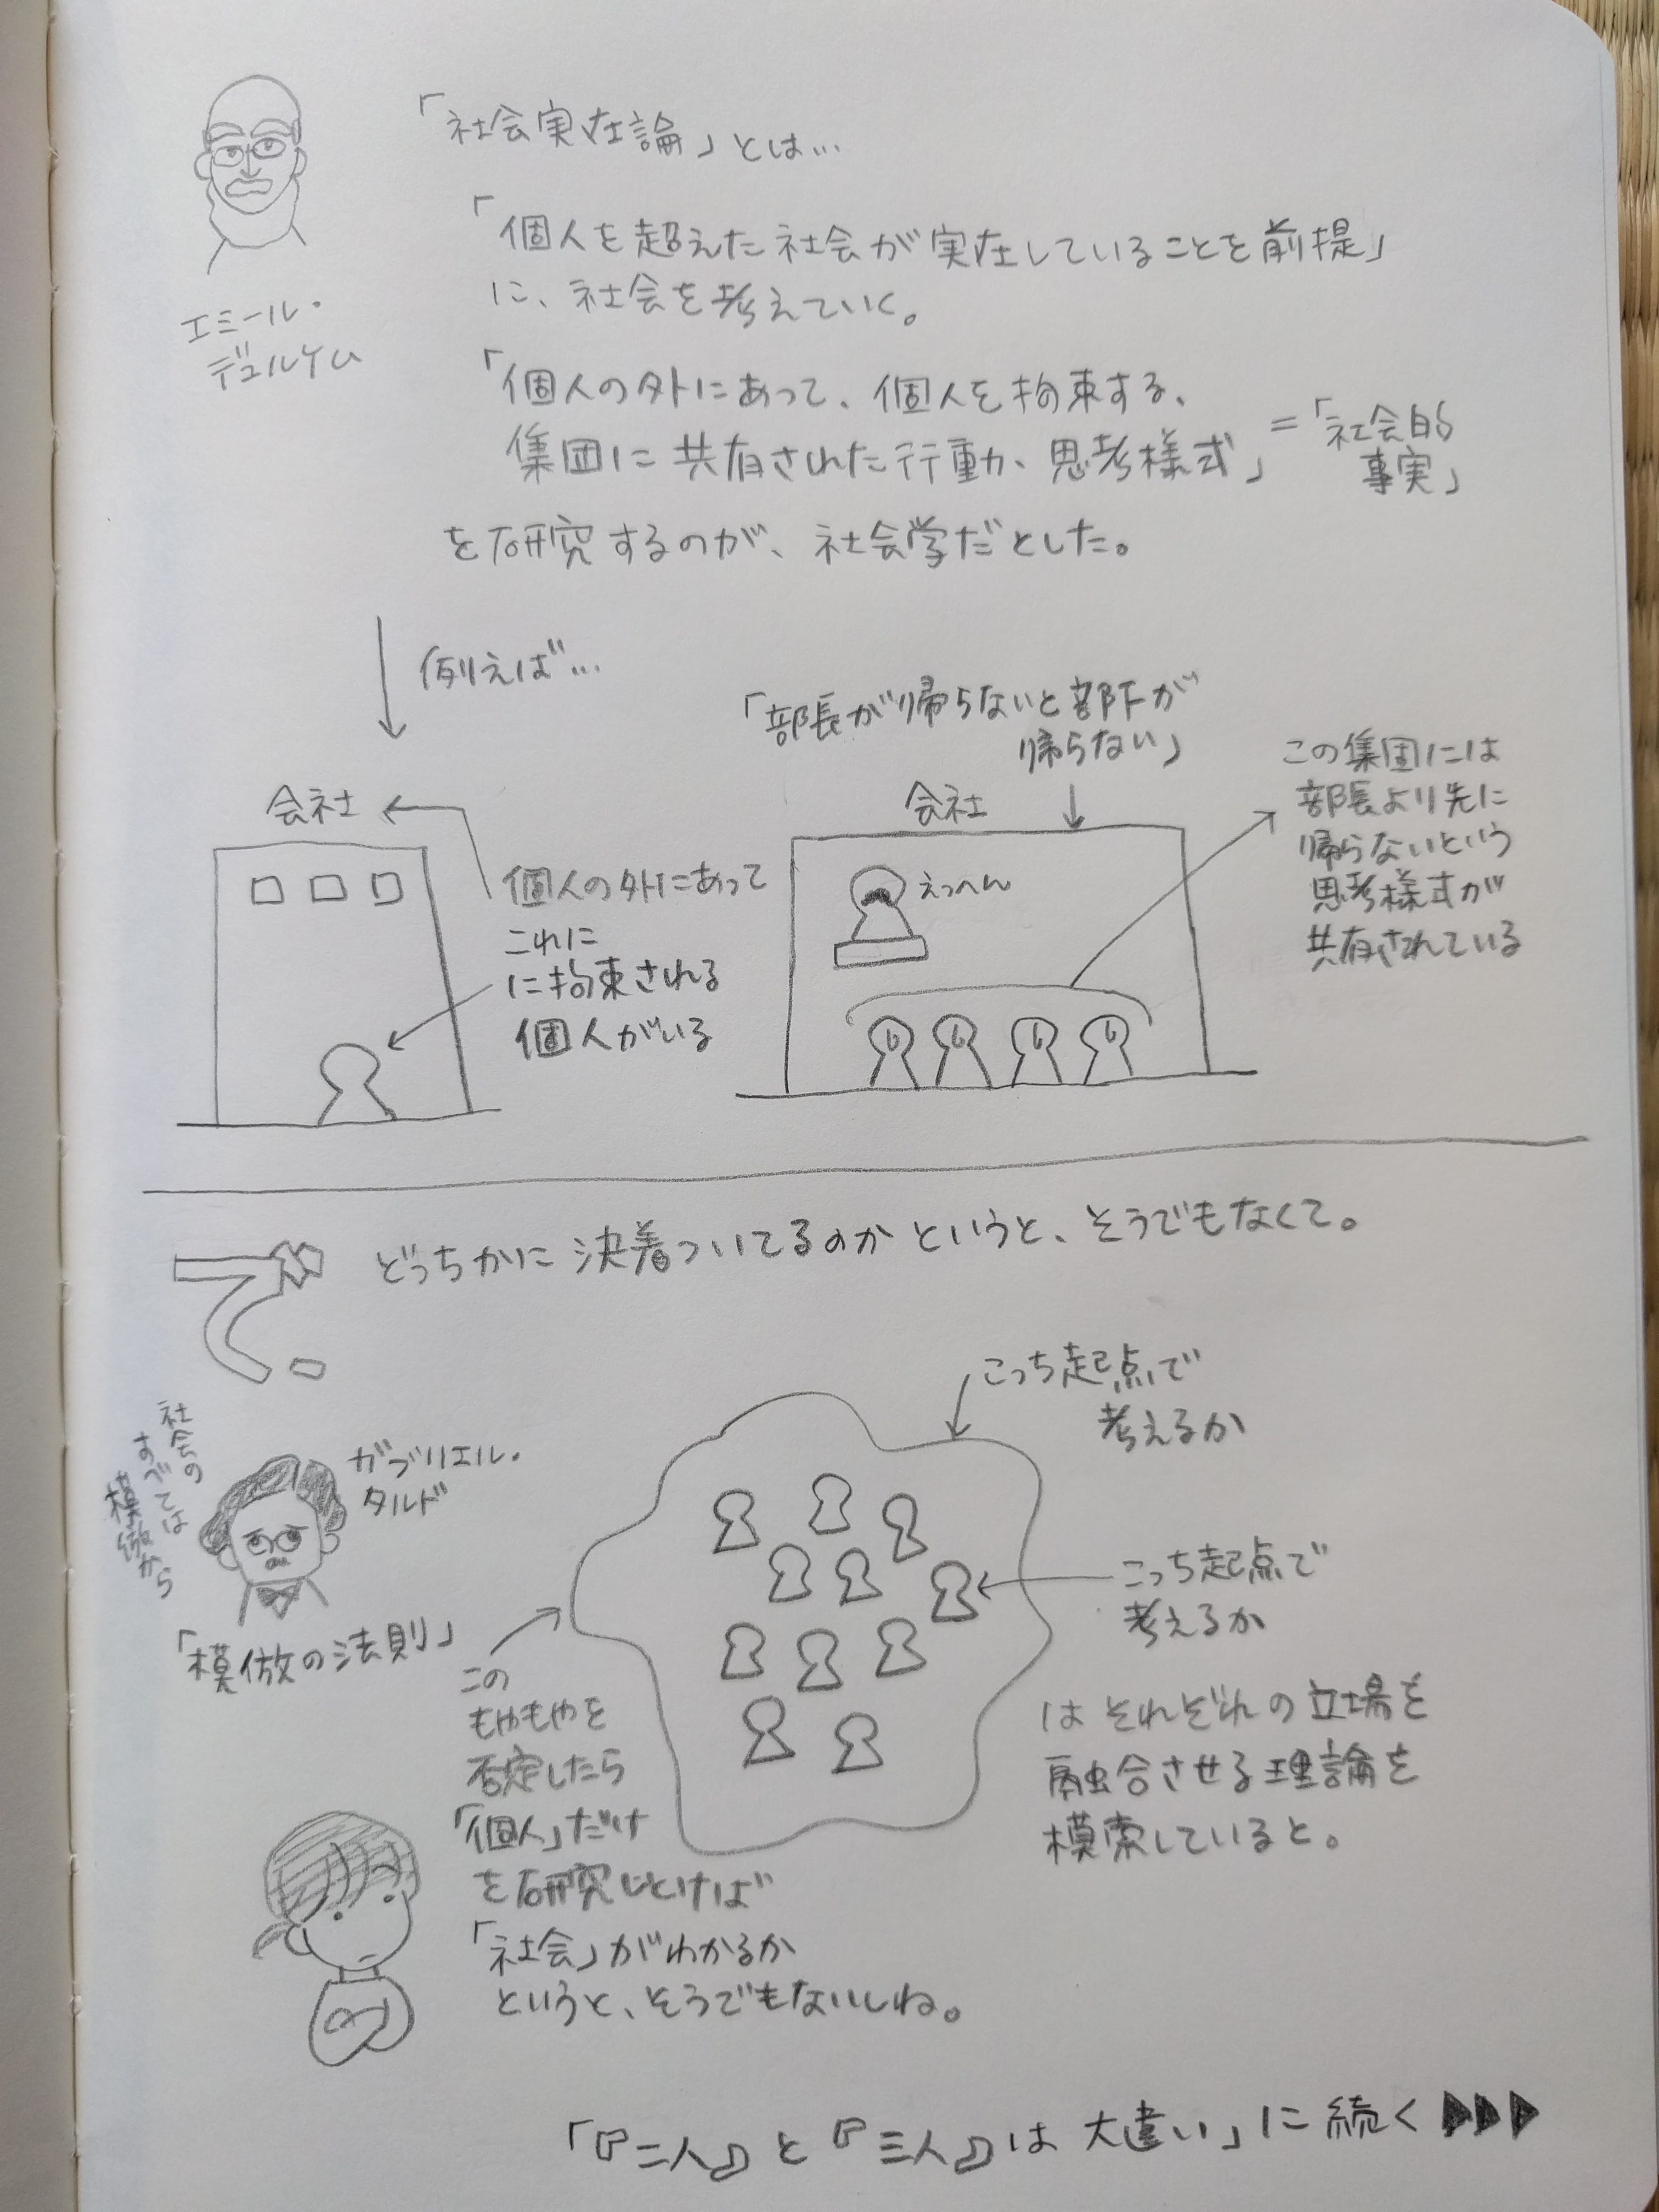 「社会実在論」とは…
「個人を超えた社会が実在していることを前提」
に、社会を考えていく。
エミール・
デュルケム
「個人の外にあって、個人を拘束する、
集団に共有された行動、思考様式」
=「社会的
事実」
を研究するのが、社会学だとした。
例えば…
会社
個人の外にあって
これに
に拘束される
個人がいる
「部長が帰らないと部下が
帰らない」
会社
えっへん
この集団には
部長より先に
帰らないという
思考様式が
共有されている
で、
どっちかに決着ついてるのかというと、そうでもなくて。
社会の
すべては
模倣から
ガブリエル・
タルド
「模倣の法則」
こっち起点で
考えるか
こっち起点で
考えるか
はそれぞれの立場を
融合させる理論を
模索していると。
この
もやもやを
否定したら
「個人」だけ
を研究しとけば
「社会」がわかるか
というと、そうでもないしね。
「『二人』と『三人』は大違い」に続く▶▶▶